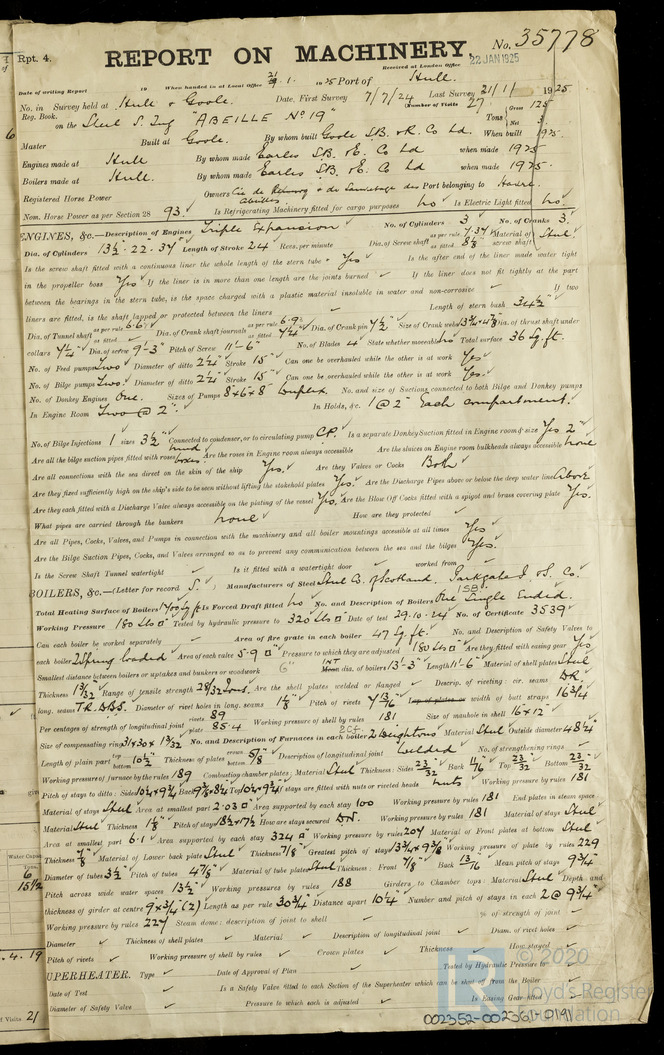 Rpt. 4.
REPORT ON MACHINERY. No. 35778
Received at London Office 22 JAN 1925
Date of writing Report 19 When handed in at Local Office 21.1.1925 Port of Hull.
No. in Survey held at Hull & Goole Date, First Survey 7/7/24 Last Survey 21/1/1925
Reg. Book. (Number of Visits 27
on the Steel S. Tug "ABEILLE No 19" Tons Gross 125 Net 3
Master Built at Goole. By whom built Goole S.B. & R. Co Ld. When built 1925.
Engines made at Hull By whom made Earles S.B. & E. Co Ld when made 1925
Boilers made at Hull. By whom made Earles S.B. & E. Co Ld when made 1925.
Registered Horse Power Owners Cie de Remorq. & de Sauvetage des Abeilles Port belonging to Havre.
Nom. Horse Power as per Section 28 93. Is Refrigerating Machinery fitted for cargo purposes No Is Electric Light fitted No.
ENGINES, &c.—Description of Engines Triple Expansion No. of Cylinders 3 No. of Cranks 3.
Dia. of Cylinders 13½ - 22 - 37" Length of Stroke 24 Revs. per minute Dia. of Screw shaft as per rule 7.37 as fitted 8⅛ Material of screw shaft Steel
Is the screw shaft fitted with a continuous liner the whole length of the stern tube Yes Is the after end of the liner made water tight
in the propeller boss Yes If the liner is in more than one length are the joints burned If the liner does not fit tightly at the part
between the bearings in the stern tube, is the space charged with a plastic material insoluble in water and non-corrosive If two
liners are fitted, is the shaft lapped or protected between the liners Length of stern bush 34½"
Dia. of Tunnel shaft as per rule 6.61 as fitted Dia. of Crank shaft journals as per rule 6.9 as fitted 7¼ Dia. of Crank pin 7½ Size of Crank webs 13¾ x 4⅞ Dia. of thrust shaft under
collars 7¼ Dia. of screw 9'-3" Pitch of Screw 11'-6" No. of Blades 4 State whether moveable No Total surface 36 sq. ft.
No. of Feed pumps Two Diameter of ditto 2¼ Stroke 15" Can one be overhauled while the other is at work Yes.
No. of Bilge pumps Two. Diameter of ditto 2¼ Stroke 15" Can one be overhauled while the other is at work Yes.
No. of Donkey Engines One. Sizes of Pumps 8 x 6 x 8 Duplex. No. and size of Suctions connected to both Bilge and Donkey pumps
In Engine Room Two @ 2". In Holds, &c. 1 @ 2" Each compartment.
No. of Bilge Injections 1 sizes 3½" Connected to condenser, or to circulating pump CP. Is a separate Donkey Suction fitted in Engine room & size Yes 2"
Are all the bilge suction pipes fitted with roses mud boxes Are the roses in Engine room always accessible Are the sluices on Engine room bulkheads always accessible none
Are all connections with the sea direct on the skin of the ship Yes. Are they Valves or Cocks Both
Are they fixed sufficiently high on the ship's side to be seen without lifting the stokehold plates Yes. Are the Discharge Pipes above or below the deep water line Above
Are they each fitted with a Discharge Valve always accessible on the plating of the vessel Yes. Are the Blow Off Cocks fitted with a spigot and brass covering plate Yes.
What pipes are carried through the bunkers none How are they protected
Are all Pipes, Cocks, Valves, and Pumps in connection with the machinery and all boiler mountings accessible at all times Yes
Are the Bilge Suction Pipes, Cocks, and Valves arranged so as to prevent any communication between the sea and the bilges Yes.
Is the Screw Shaft Tunnel watertight Is it fitted with a watertight door worked from
BOILERS, &c.—(Letter for record S.) Manufacturers of Steel Steel Co. of Scotland, Parkgate I. & S. Co.
Total Heating Surface of Boilers 1700 sq ft Is Forced Draft fitted No No. and Description of Boilers One Single Ended. 1SB.
Working Pressure 180 lbs Tested by hydraulic pressure to 320 lbs Date of test 29.10.24 No. of Certificate 3539
Can each boiler be worked separately Area of fire grate in each boiler 47 sq. ft. No. and Description of Safety Valves to
each boiler 2 Spring loaded Area of each valve 5.9 Pressure to which they are adjusted 180 lbs Are they fitted with easing gear Yes
Smallest distance between boilers or uptakes and bunkers or woodwork 6" INT Mean dia. of boilers 13'-3" Length 11'-6" Material of shell plates Steel
Thickness 1 3/32 Range of tensile strength 28/32 tons. Are the shell plates welded or flanged Descrip. of riveting: cir. seams D.R.
long. seams T.R. D.B.S. Diameter of rivet holes in long. seams 1⅛ Pitch of rivets 7 13/16 Lap of plates or width of butt straps 16¾
Per centages of strength of longitudinal joint rivets 89 plates 85.4 Working pressure of shell by rules 181 Size of manhole in shell 16 x 12"
Size of compensating ring 31 x 30 x 1 3/32 No. and Description of Furnaces in each boiler 2 Deightons Material Steel Outside diameter 48¼"
Length of plain part top bottom 10½" Thickness of plates crown bottom 5/8 Description of longitudinal joint Welded No. of strengthening rings
Working pressure of furnace by the rules 189 Combustion chamber plates: Material Steel Thickness: Sides 23/32 Back 11/16 Top 23/32 Bottom 23/32
Pitch of stays to ditto: Sides 10¼ x 9¾ Back 9⅜ x 8¼ Top 10¼ x 9¾ If stays are fitted with nuts or riveted heads Nuts Working pressure by rules 181
Material of stays Steel Area at smallest part 2.03 Area supported by each stay 100 Working pressure by rules 181 End plates in steam space
Material Steel Thickness 1⅛ Pitch of stays 18½ x 17½ How are stays secured D.N. Working pressure by rules 181 Material of stays Steel
Area at smallest part 6.1 Area supported by each stay 324 Working pressure by rules 207 Material of Front plates at bottom Steel
Thickness 7/8 Material of Lower back plate Steel Thickness 7/8 Greatest pitch of stays 13¾ x 9⅜ Working pressure of plate by rules 229
Diameter of tubes 3½ Pitch of tubes 4⅞ Material of tube plates Steel Thickness: Front 7/8 Back 13/16 Mean pitch of stays 9¾
Pitch across wide water spaces 13½" Working pressures by rules 188 Girders to Chamber tops: Material Steel Depth and
thickness of girder at centre 9 x ¾ (2) Length as per rule 30¾ Distance apart 10¼ Number and pitch of stays in each 2 @ 9¾"
Working pressure by rules 227 Steam dome: description of joint to shell % of strength of joint
Diameter Thickness of shell plates Material Description of longitudinal joint Diam. of rivet holes
Pitch of rivets Working pressure of shell by rules Crown plates Thickness How stayed
UPERHEATER. Type Date of Approval of Plan Tested by Hydraulic Pressure to
Date of Test Is a Safety Valve fitted to each Section of the Superheater which can be shut off from the Boiler
Diameter of Safety Valve Pressure to which each is adjusted Is Easing Gear fitted
© 2020
Lloyd's Register
Foundation
002352-002361-0191
Water Capac
6
15½
.4.19
f Visits 21